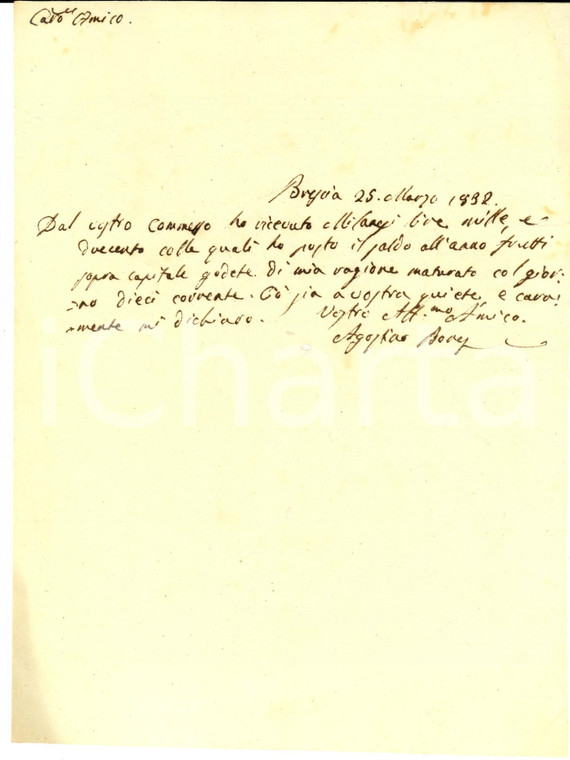 Car.o Amico.
Brescia 25. Marzo 1832.
Dal vostro Commesso ho ricevuto Milanesi lire mille, e
duecento colle quali ho posto il saldo all'anno frutti
sopra capitale godete di mia ragione maturato col gior:
=no dieci corrente. Ciò sia a vostra quiete, e cara:
=mente mi dichiaro. Vostro Aff.mo Amico.
Agostino
iCharta